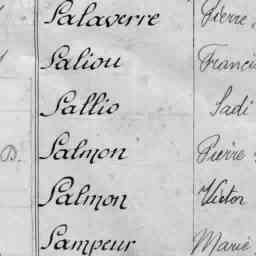 Salaverre Pierre
Saliou Franci
Sallio Sadi
D. Salmon Pierre
Salmon Victor
Sampeur Marie